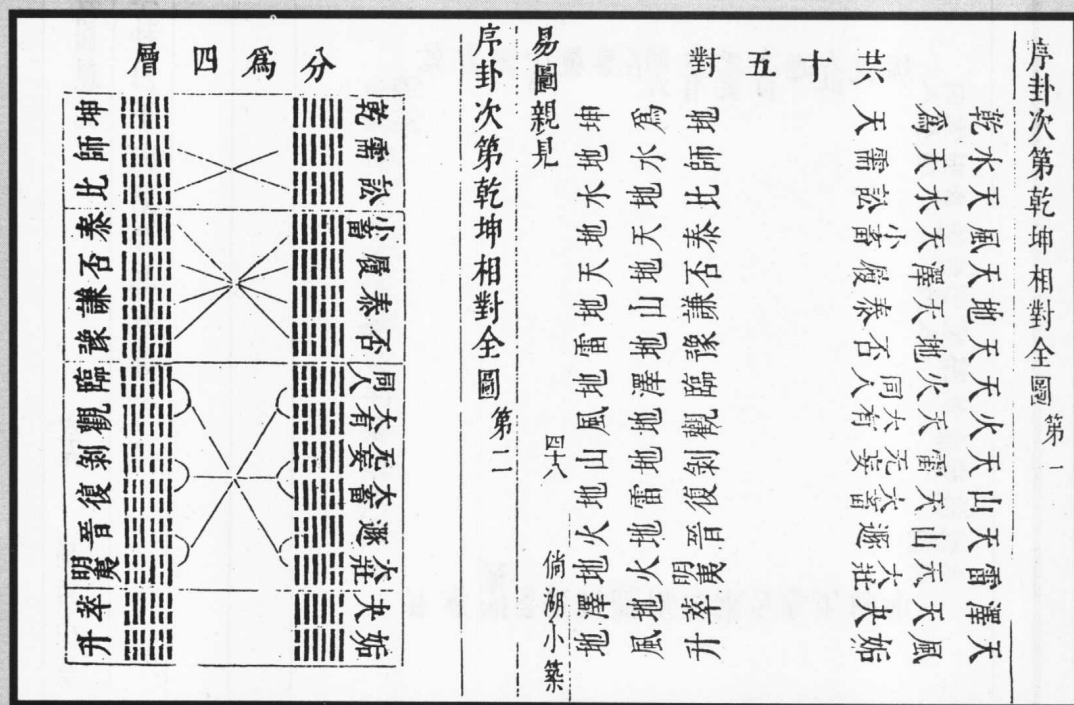 序卦次第乾坤相對全圖 第一
共十五對
乾水天風天地天天火天山天雷澤天
為天水天澤天地火天雷天山天天風
天需訟小畜履泰否同人大有无妄大畜遯大壯夬姤
地師比泰否謙豫臨觀剝復晉明夷萃升
為水地天地山地澤地地雷地火地風
坤地水地天地雷地風山地火地澤地
易圖親見 四十八 倘湖小築
序卦次第乾坤相對全圖 第二
分為四層
乾需訟小畜履泰否同人大有无妄大畜遯大壯夬姤
坤師比泰否謙豫臨觀剝復晉明夷萃升